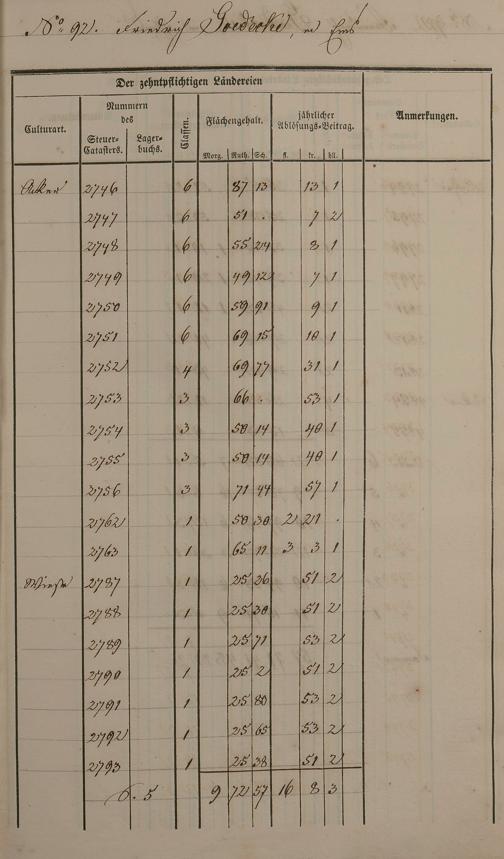 No. 92. Friedrich Goedecke, in Ems
Der zehntpflichtigen Ländereien
Culturart. Nummern des Steuer-Catasters. Lager-buchs. Classen. Flächengehalt. Morg. Ruth. Sch. jährlicher Ablösungs-Beitrag. fl. kr. hll. Anmerkungen.
Acker 2746 6 87 13 13 1
2747 6 51 . 7 2
2748 6 55 24 8 1
2749 6 49 12 7 1
2750 6 59 91 9 1
2751 6 69 15 10 1
2752 4 69 77 31 1
2753 3 66 . 53 1
2754 3 50 14 40 1
2755 3 50 14 40 1
2756 3 71 44 57 1
2762 1 50 30 2 21 .
2763 1 65 11 3 3 1
Wiese 2787 1 25 26 51 2
2788 1 25 30 51 2
2789 1 25 71 53 2
2790 1 25 2 51 2
2791 1 25 80 53 2
2792 1 25 65 53 2
2793 1 25 38 51 2
S. 5 9 72 57 16 8 3